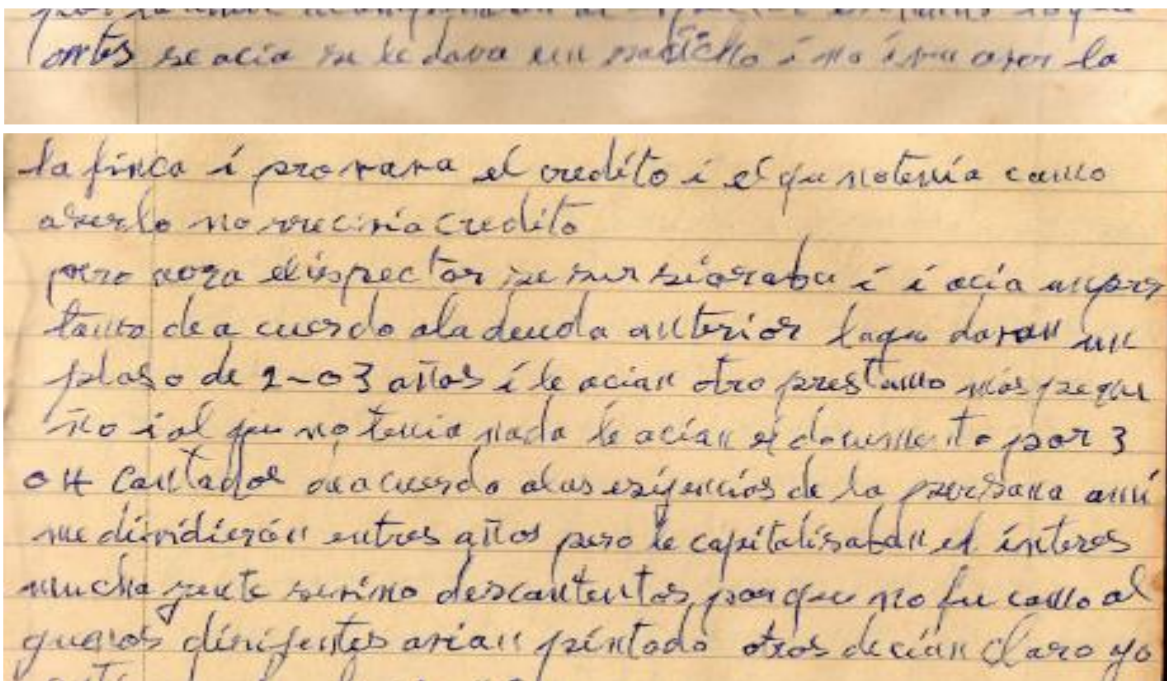 antes se acia se le dava un i no iva aver la
la finca i provava el credíto i el que notenía como
aserlo no reciviá credíto
pero aora elíspector se i i acía unpres
tamo de a cuerdo ala deuda anterior laqu davan un
plaso de 2-03 años i le acian otro prestamo más peque
ño i al que no tenia nada le acían el documento por 3
o 4 deacuerdo alas esijencias de la persona amí
me dividierón entres años pero le capitalisaban el ínteres
mucha jente vino descontentos, porque no fue como al
gunos dirijentes avian píntado otros decián claro yo